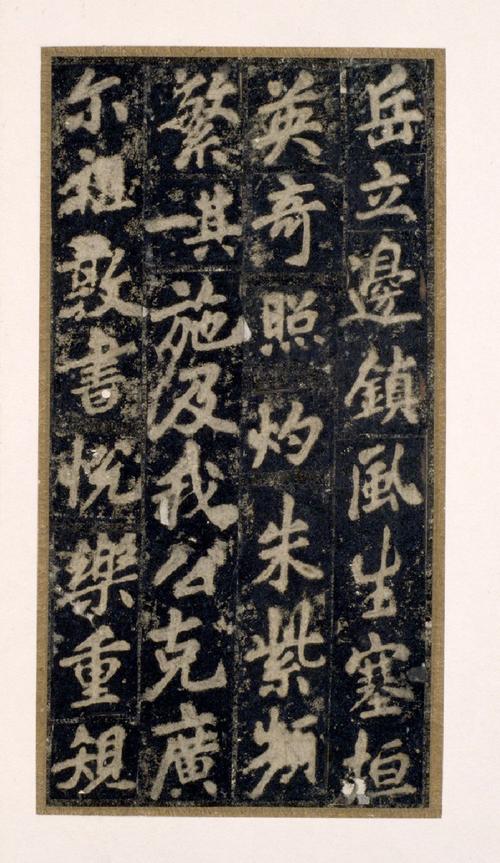 岳立邊鎮風生塞垣
英奇照灼朱紫頻
繁其一施及我公克廣
尔祖敦書悅樂重規